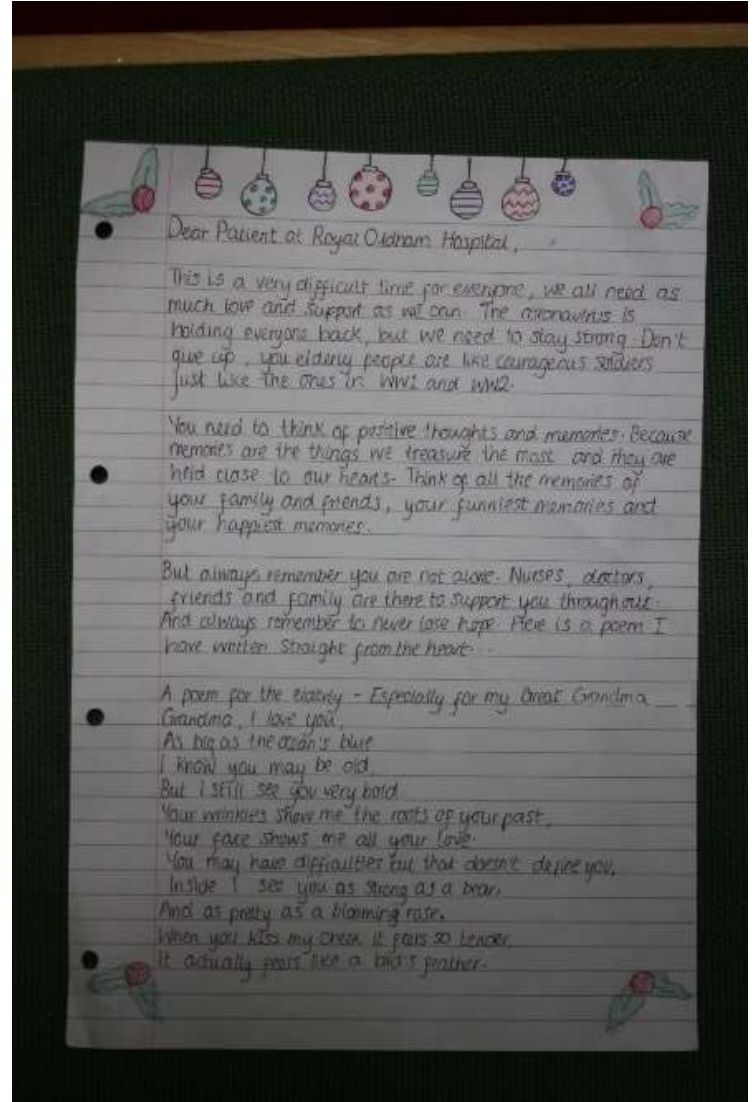 Dear Patient at Royal Oldham Hospital,
This is a very difficult time for everyone, we all need as
much love and support as we can. The coronavirus is
holding everyone back, but we need to stay strong. Don't
give up, you elderly people are like courageous soldiers
just like the ones in WW1 and WW2.
You need to think of positive thoughts and memories. Because
memories are the things we treasure the most and they are
held close to our hearts. Think of all the memories of
your family and friends, your funniest memories and
your happiest memories.
But always remember you are not alone. Nurses, doctors,
friends and family are there to support you throughout.
And always remember to never lose hope. Here is a poem I
have written straight from the heart...
A poem for the elderly - Especially for my Great Grandma __
Grandma, I love you,
As big as the ocean's blue
I know you may be old,
But I still see you very bold.
Your wrinkles show me the roots of your past,
Your face shows me all your love.
You may have difficulties but that doesn't define you,
Inside I see you as strong as a bear,
And as pretty as a blooming rose.
When you kiss my cheek it feels so tender,
It actually feels like a bird's feather.